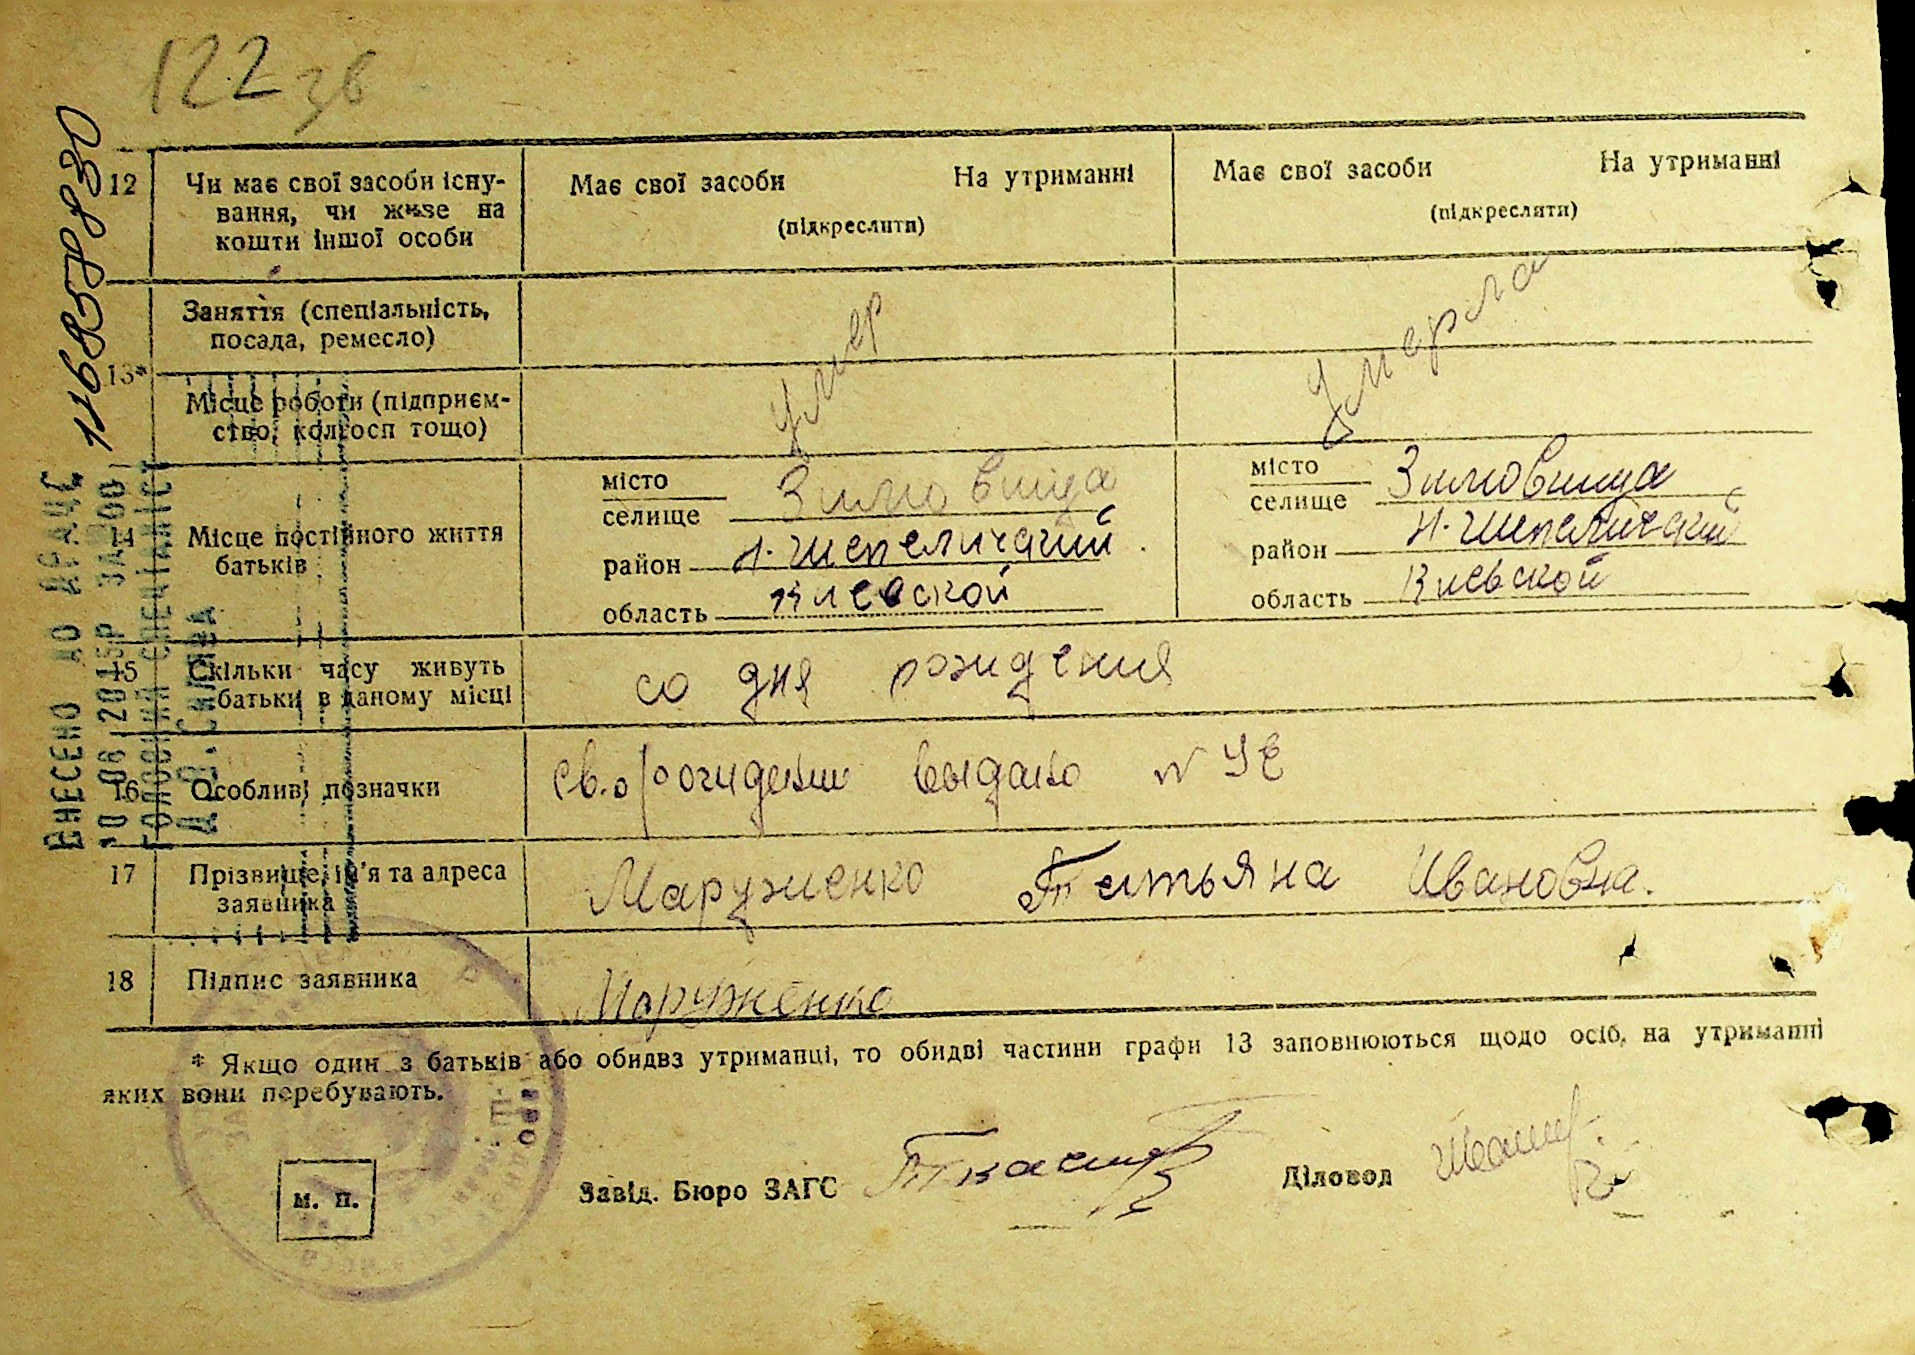 122 зв
1168588830
ВНЕСЕНО ДО ДРАЦС
12 Чи має свої засоби існу-
вання, чи живе на
кошти іншої особи
Має свої засоби На утриманні
(підкреслити)
Має свої засоби На утриманні
(підкреслити)
13*
Заняття (спеціальність,
посада, ремесло)
Місце роботи (підприєм-
ство, колгосп тощо)
умер
умерла
14 Місце постійного життя
батьків
місто
селище Зимовища
район Н. Шепеличский
область Киевской
місто
селище Зимовища
район Н. Шепеличский
область Киевской
15 Скільки часу живуть
батьки в даному місці
со дня рождения
16 Особливі позначки
св. о рождении выдано N
17 Прізвище, ім'я та адреса
заявника
Маруженко Татьяна Ивановна.
18 Підпис заявника
Маруженко
* Якщо один з батьків або обидва утриманці, то обидві частини графи 13 заповнюються щодо осіб, на утриманні
яких вони перебувають.
м. п.
Завід. Бюро ЗАГС
Діловод